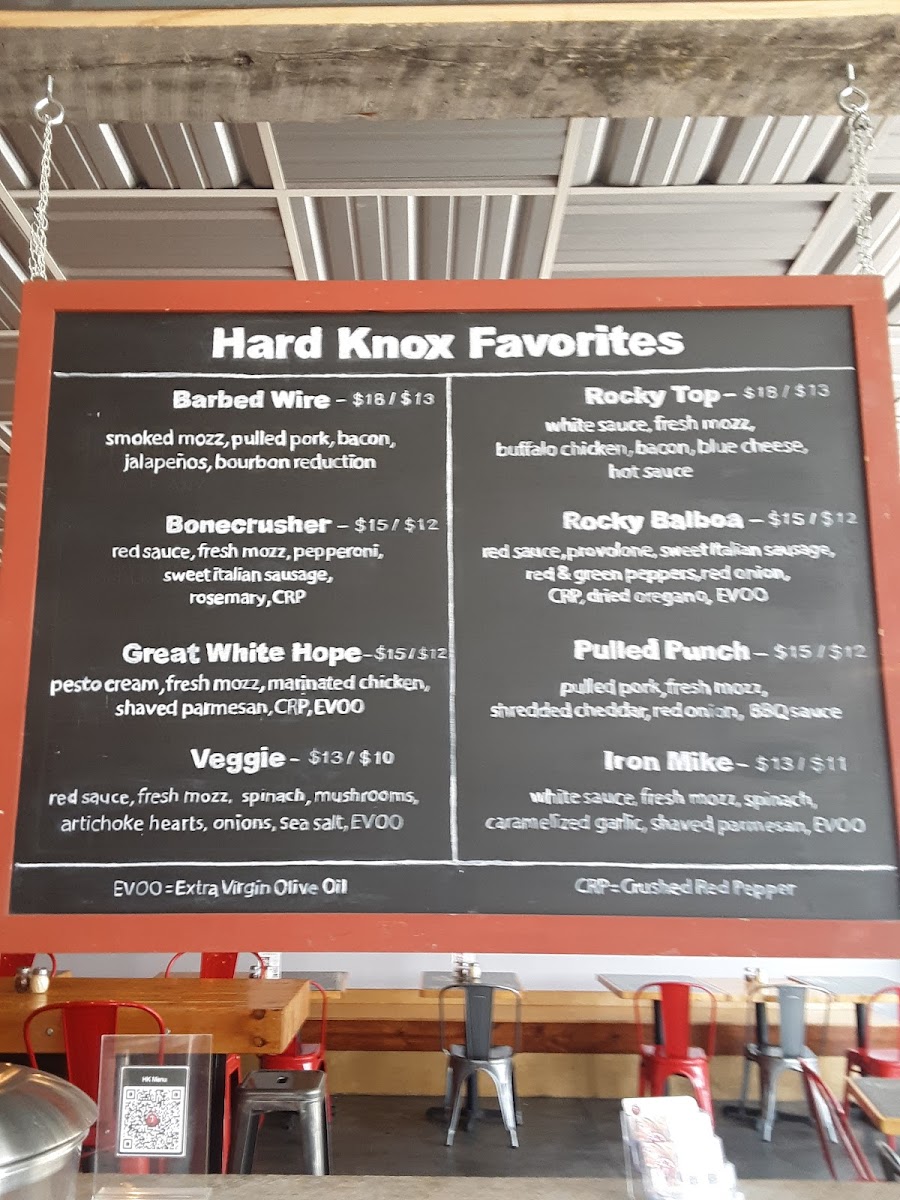 Hard Knox Favorites
Barbed Wire - $18 / $13
smoked mozz, pulled pork, bacon,
jalapeños, bourbon reduction
Bonecrusher - $15 / $12
red sauce, fresh mozz, pepperoni,
sweet italian sausage,
rosemary, CRP
Great White Hope - $15 / $12
pesto cream, fresh mozz, marinated chicken,
shaved parmesan, CRP, EVOO
Veggie - $13 / $10
red sauce, fresh mozz. spinach, mushrooms,
artichoke hearts, onions, sea salt, EVOO
Rocky Top - $18 / $13
white sauce, fresh mozz,
buffalo chicken, bacon, blue cheese,
hot sauce
Rocky Balboa - $15 / $12
red sauce, provolone, sweet Italian sausage,
red & green peppers, red onion,
CRP, dried oregano, EVOO
Pulled Punch - $15 / $12
pulled pork, fresh mozz,
shredded cheddar, red onion, BBQ sauce
Iron Mike - $13 / $11
white sauce, fresh mozz, spinach,
caramelized garlic, shaved parmesan, EVOO
EVOO = Extra Virgin Olive Oil
CRP = Crushed Red Pepper
HK Menu